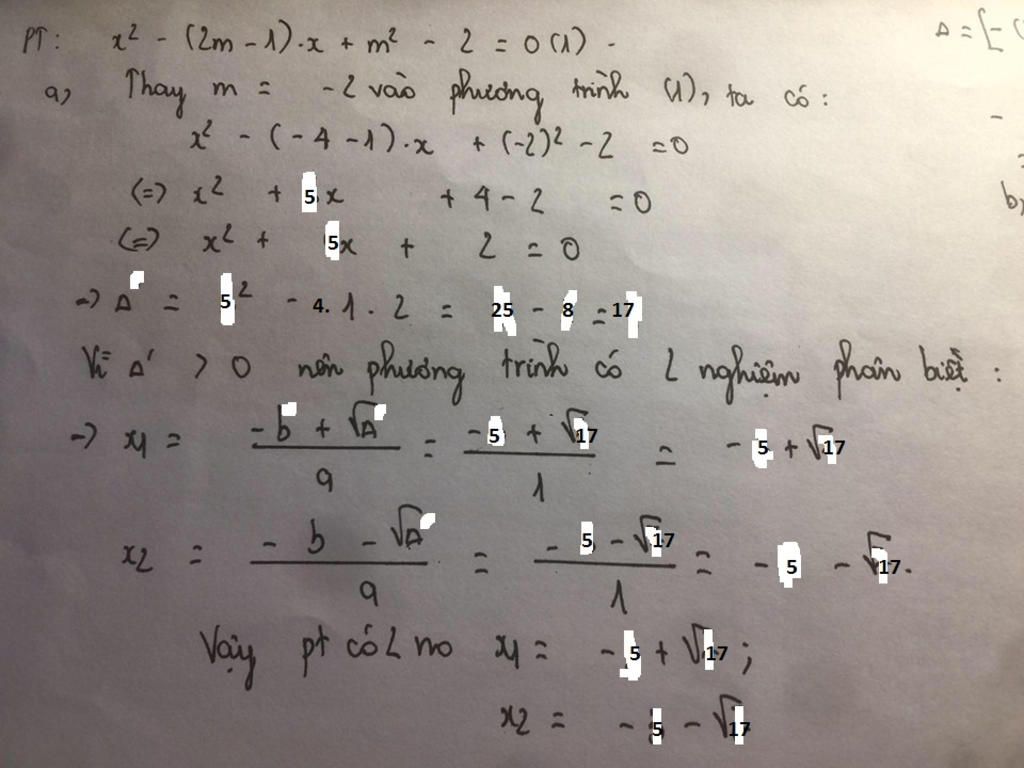 PT: x² - (2m - 1).x + m² - 2 = 0 (1).
Δ = [-(
a, Thay m = -2 vào phương trình (1), ta có:
x² - (-4 -1).x + (-2)² - 2 = 0
(=) x² + 5x + 4 - 2 = 0
b,
(=) x² + 5x + 2 = 0
-> Δ = 5² - 4. 1 . 2 = 25 - 8 = 17
Vì Δ' > 0 nên phương trình có 2 nghiệm phân biệt:
-> x1 = (-b + √Δ)/a = (-5 + √17)/1 = -5 + √17
x2 = (-b - √Δ)/a = (-5 - √17)/1 = -5 - √17.
Vậy pt có 2 no x1 = -5 + √17;
x2 = -5 - √17